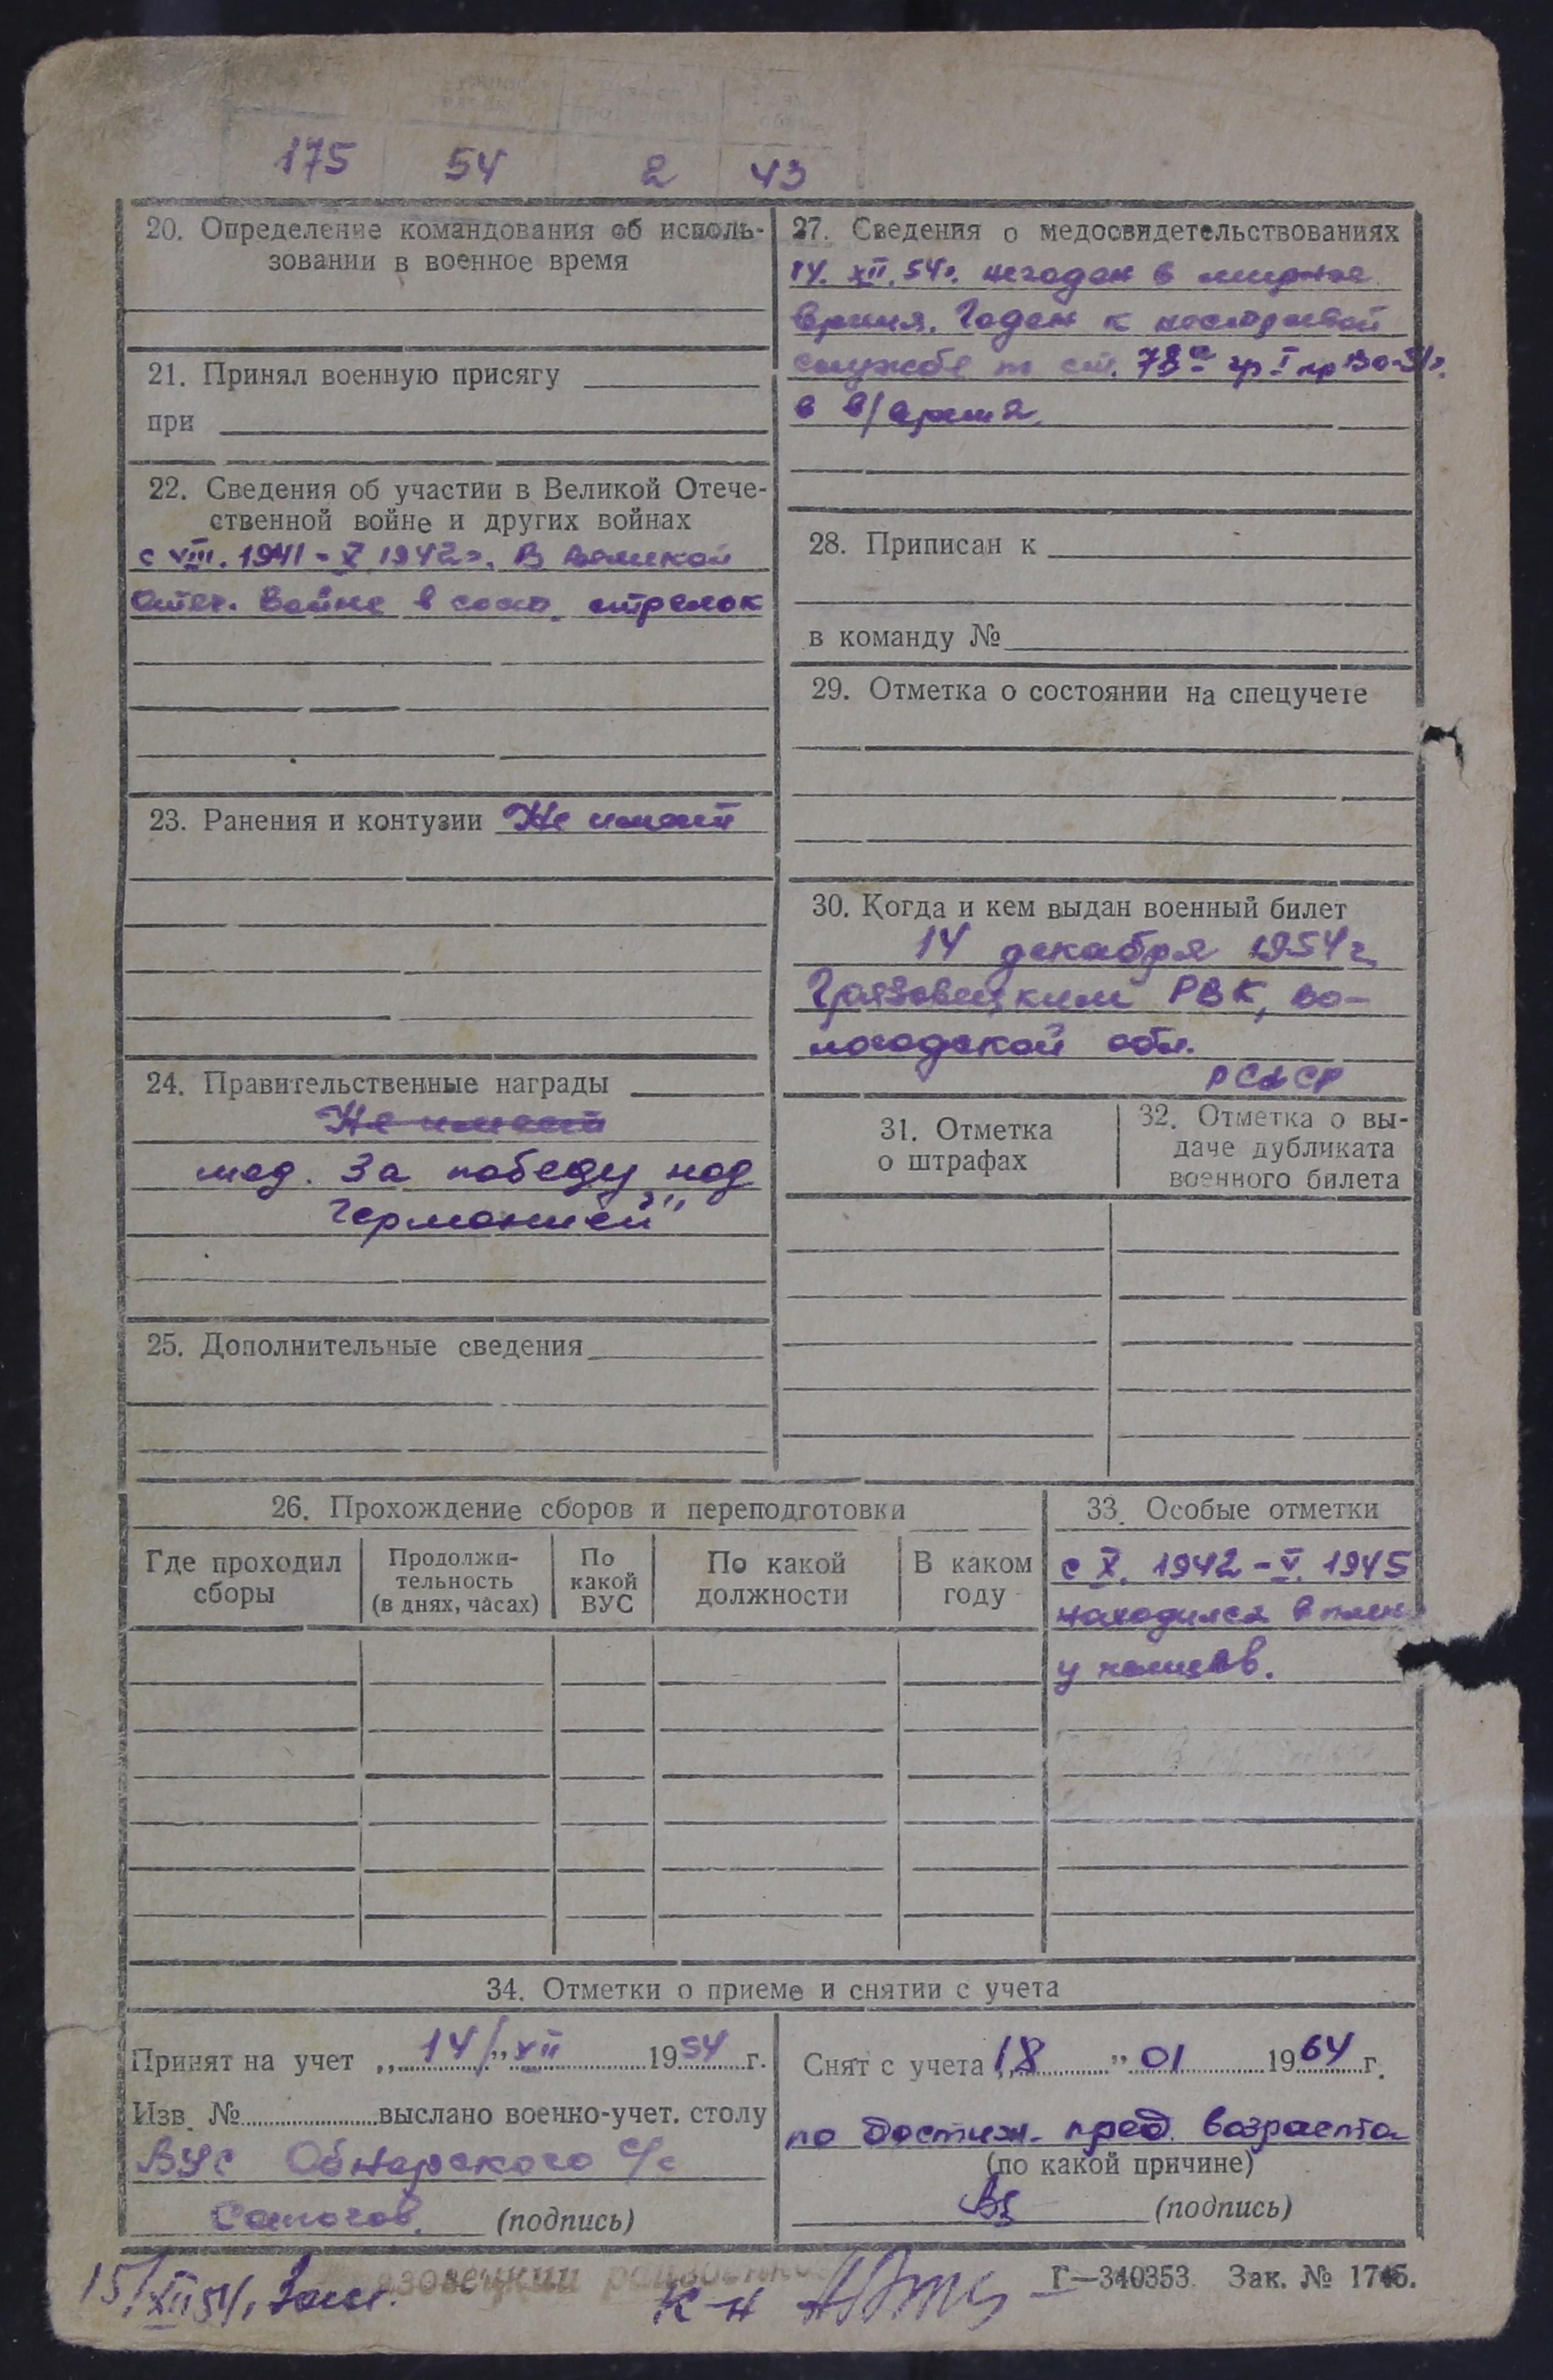 175 54 2 43
20. Определение командования об исполь-
зовании в военное время
21. Принял военную присягу
при
22. Сведения об участии в Великой Отече-
ственной войне и других войнах
с VIII. 1941 - X 1942г. В Великой
Отеч. Войне в сост. стрелок
23. Ранения и контузии Не имеет
24. Правительственные награды
Не имеет
мед. За победу над
Германией"
25. Дополнительные сведения
27. Сведения о медосвидетельствованиях
14. XII. 54г. негоден в мирное
время. Годен к нестроевой
службе по ст. 78а гр I пр
в в/время.
28. Приписан к
в команду №
29. Отметка о состоянии на спецучете
30. Когда и кем выдан военный билет
14 декабря 1954 г.
Грязовецким РВК, Во-
логодской обл.
РСФСР
31. Отметка
о штрафах
32. Отметка о вы-
даче дубликата
военного билета
26. Прохождение сборов и переподготовки
Где проходил
сборы
Продолжи-
тельность
(в днях, часах)
По
какой
ВУС
По какой
должности
В каком
году
33. Особые отметки
с X. 1942 - V. 1945
находился в плену
у немцев.
34. Отметки о приеме и снятии с учета
Принят на учет „14/" XII 1954 г.
Изв. № выслано военно-учет. столу
ВУС Обнорского с/с
(подпись)
Снят с учета „18" 01 1964 г.
по достиж. пред. возраста
(по какой причине)
(подпись)
15/XII 54г.
к-н
Г—340353. Зак. № 1745.